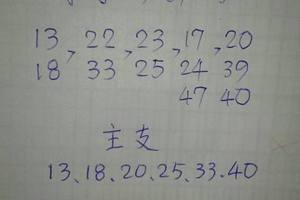 13, 22, 23, 17, 20
18 33 25 24 39
47 40
主支
13、18、20、25、33.40